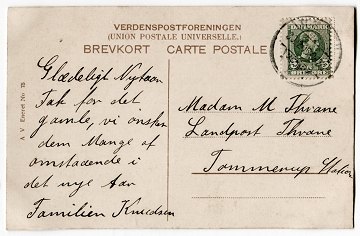 VERDENSPOSTFORENINGEN
(UNION POSTALE UNIVERSELLE.)
BREVKORT CARTE POSTALE
DANMARK
5 5
ØRE ØRE
Glædeligt Nytaar
Tak for det
gamle, vi ønsker
dem Mange af
omstaaende i
det nye Aar
Familien Knudsen
Madam M Thrane
Landpost Thrane
Tommerup Station
A V Eneret No 15